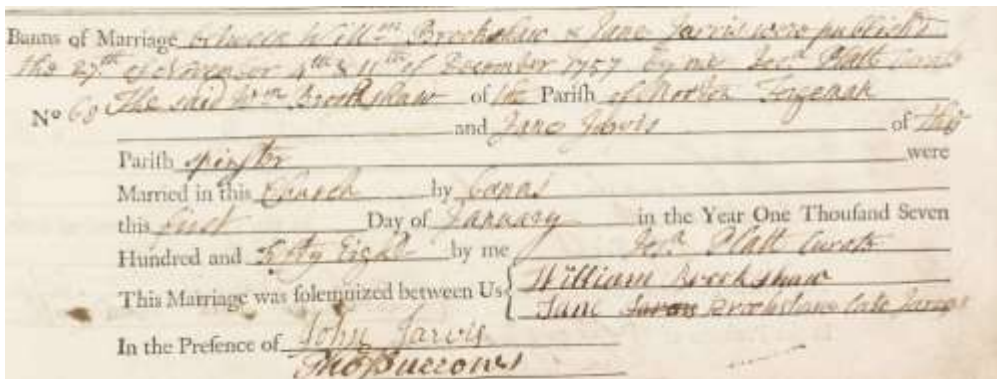 Banns of Marriage between Will.m Brookshaw & Jane Jarvis were publisht
the 27.th of November 4.th & 11.th of December 1757 by me Jos.h Platt Curate
No 68 The said W.m Brookshaw of the Parish of Norton
and Jane Jarvis of this
Parish spinster were
Married in this Church by banns
this first Day of January in the Year One Thousand Seven
Hundred and fifty Eight by me Jos.h Platt Curate
This Marriage was solemnized between Us William Brookshaw
Jane Brookshaw late Jarvis
In the Presence of John Jarvis
Tho Burrows